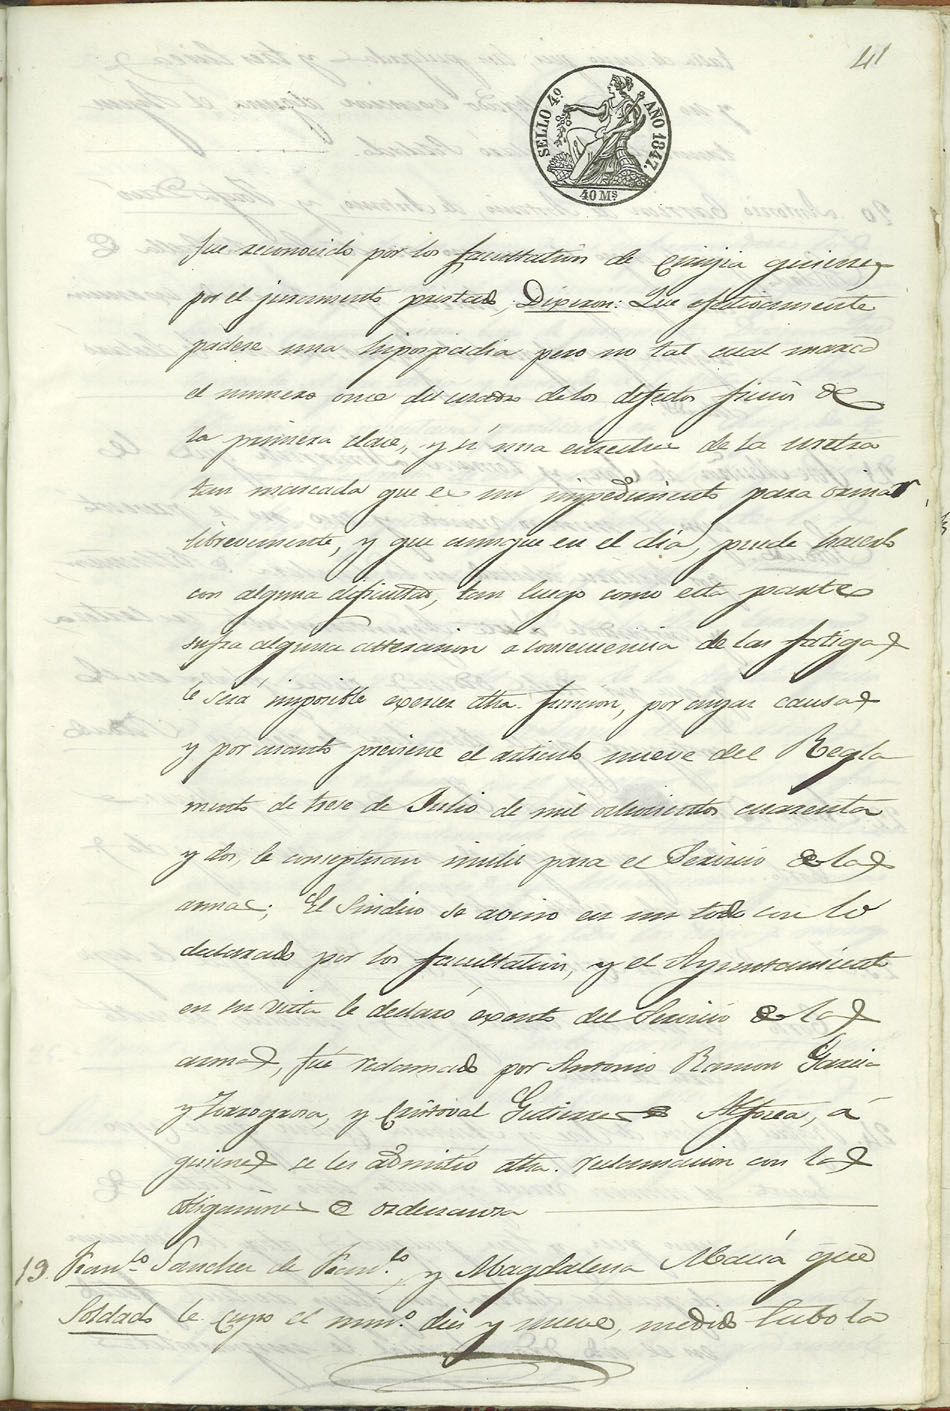 41
SELLO 4º AÑO 1847.
40 Mˢ
fue reconocido por los facultativos de Cirujia quienes
por el juramento prestado, Dixeron: Que efectivamente
padese una hipospadia pero no tal cual marca
el numero once del cuadro de los defectos fisicos de
la primera clase, y si una estrechez de la uretra
tan marcada que es un impedimento para orinar
libremente, y que aunque en el dia, puede hacerlo
con alguna dificultad, tan luego como esta parte
sufra alguna alteracion a consecuencia de las fatigas
le será imposible exercer dha. funcion, por cuyas causas
y por cuanto previene el articulo nueve del Regla
mento de trese de Julio de mil ochocientos cuarenta
y dos, le conseptuan inutil para el Servicio de las
armas; El Sindico se avino en un todo con lo
declarado por los facultativos, y el Ayuntamiento
en su vista le declaró exento del Servicio de las
armas, fué reclamado por Antonio Ramon Garcia
y Torregrosa, y Cristoval Gutierrez Alforea, á
quienes se les admitió dha. reclamacion con las
obligaciones de ordenanza
19. Franᶜᵒ Sanchez de Franᶜᵒ, y Magdalena Maciá que
Soldado le cupo el numº. dies y nueve, medido tubo la